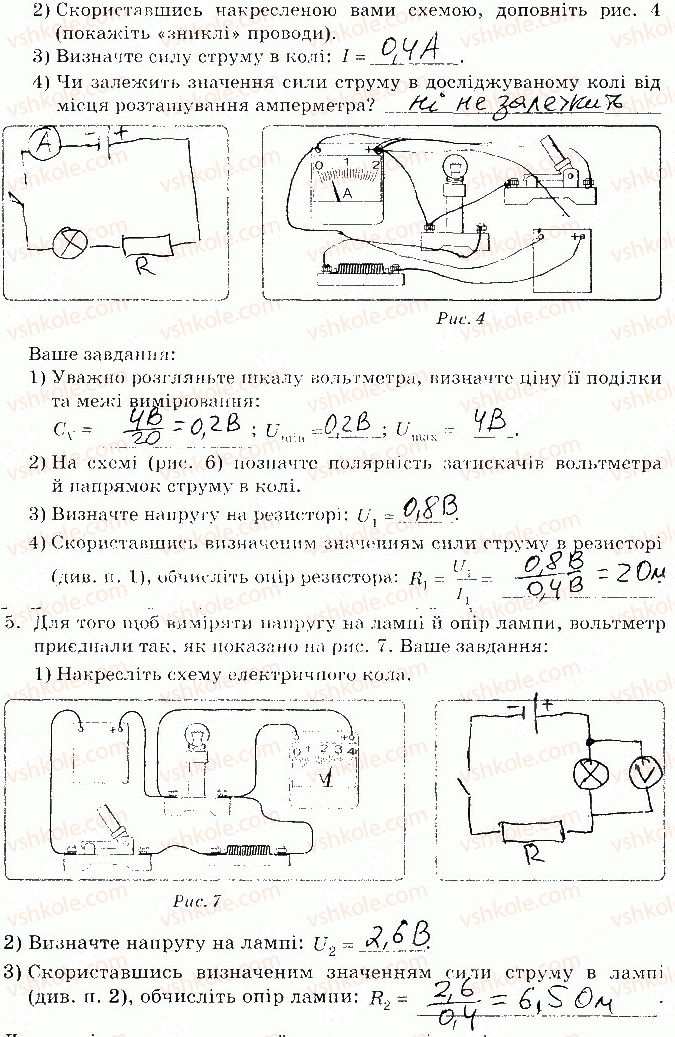 2) Скориставшись накресленою вами схемою, доповніть рис. 4
(покажіть «зниклі» проводи).
3) Визначте силу струму в колі: I = 0,4А.
4) Чи залежить значення сили струму в досліджуваному колі від
місця розташування амперметра? ні не залежить
A - +
R
0 1 2
A
- +
Рис. 4
Ваше завдання:
1) Уважно розгляньте шкалу вольтметра, визначте ціну її поділки
та межі вимірювання:
C_V = 4В/20 = 0,2В ; U_min = 0,2В ; U_max = 4В.
2) На схемі (рис. 6) позначте полярність затискачів вольтметра
й напрямок струму в колі.
3) Визначте напругу на резисторі: U₁ = 0,8В.
4) Скориставшись визначеним значенням сили струму в резисторі
(див. п. 1), обчисліть опір резистора: R₁ = U₁/I₁ = 0,8В/0,4В = 2Ом
5. Для того щоб виміряти напругу на лампі й опір лампи, вольтметр
приєднали так, як показано на рис. 7. Ваше завдання:
1) Накресліть схему електричного кола.
- +
0 1 2 3 4
V
- +
V
R
Рис. 7
2) Визначте напругу на лампі: U₂ = 2,6В.
3) Скориставшись визначеним значенням сили струму в лампі
(див. п. 2), обчисліть опір лампи: R₂ = 2,6/0,4 = 6,5Ом.
vshkole.com